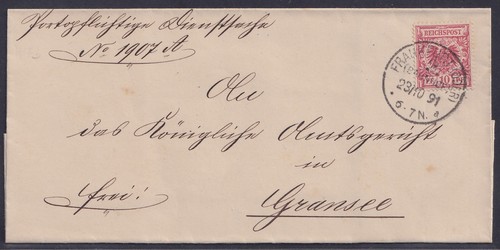 Portopflichtige Dienstsache
No 1907 A
REICHSPOST
10
23/10 91
6-7N.
An
das Königliche Amtsgericht
in
frei!
Gransee